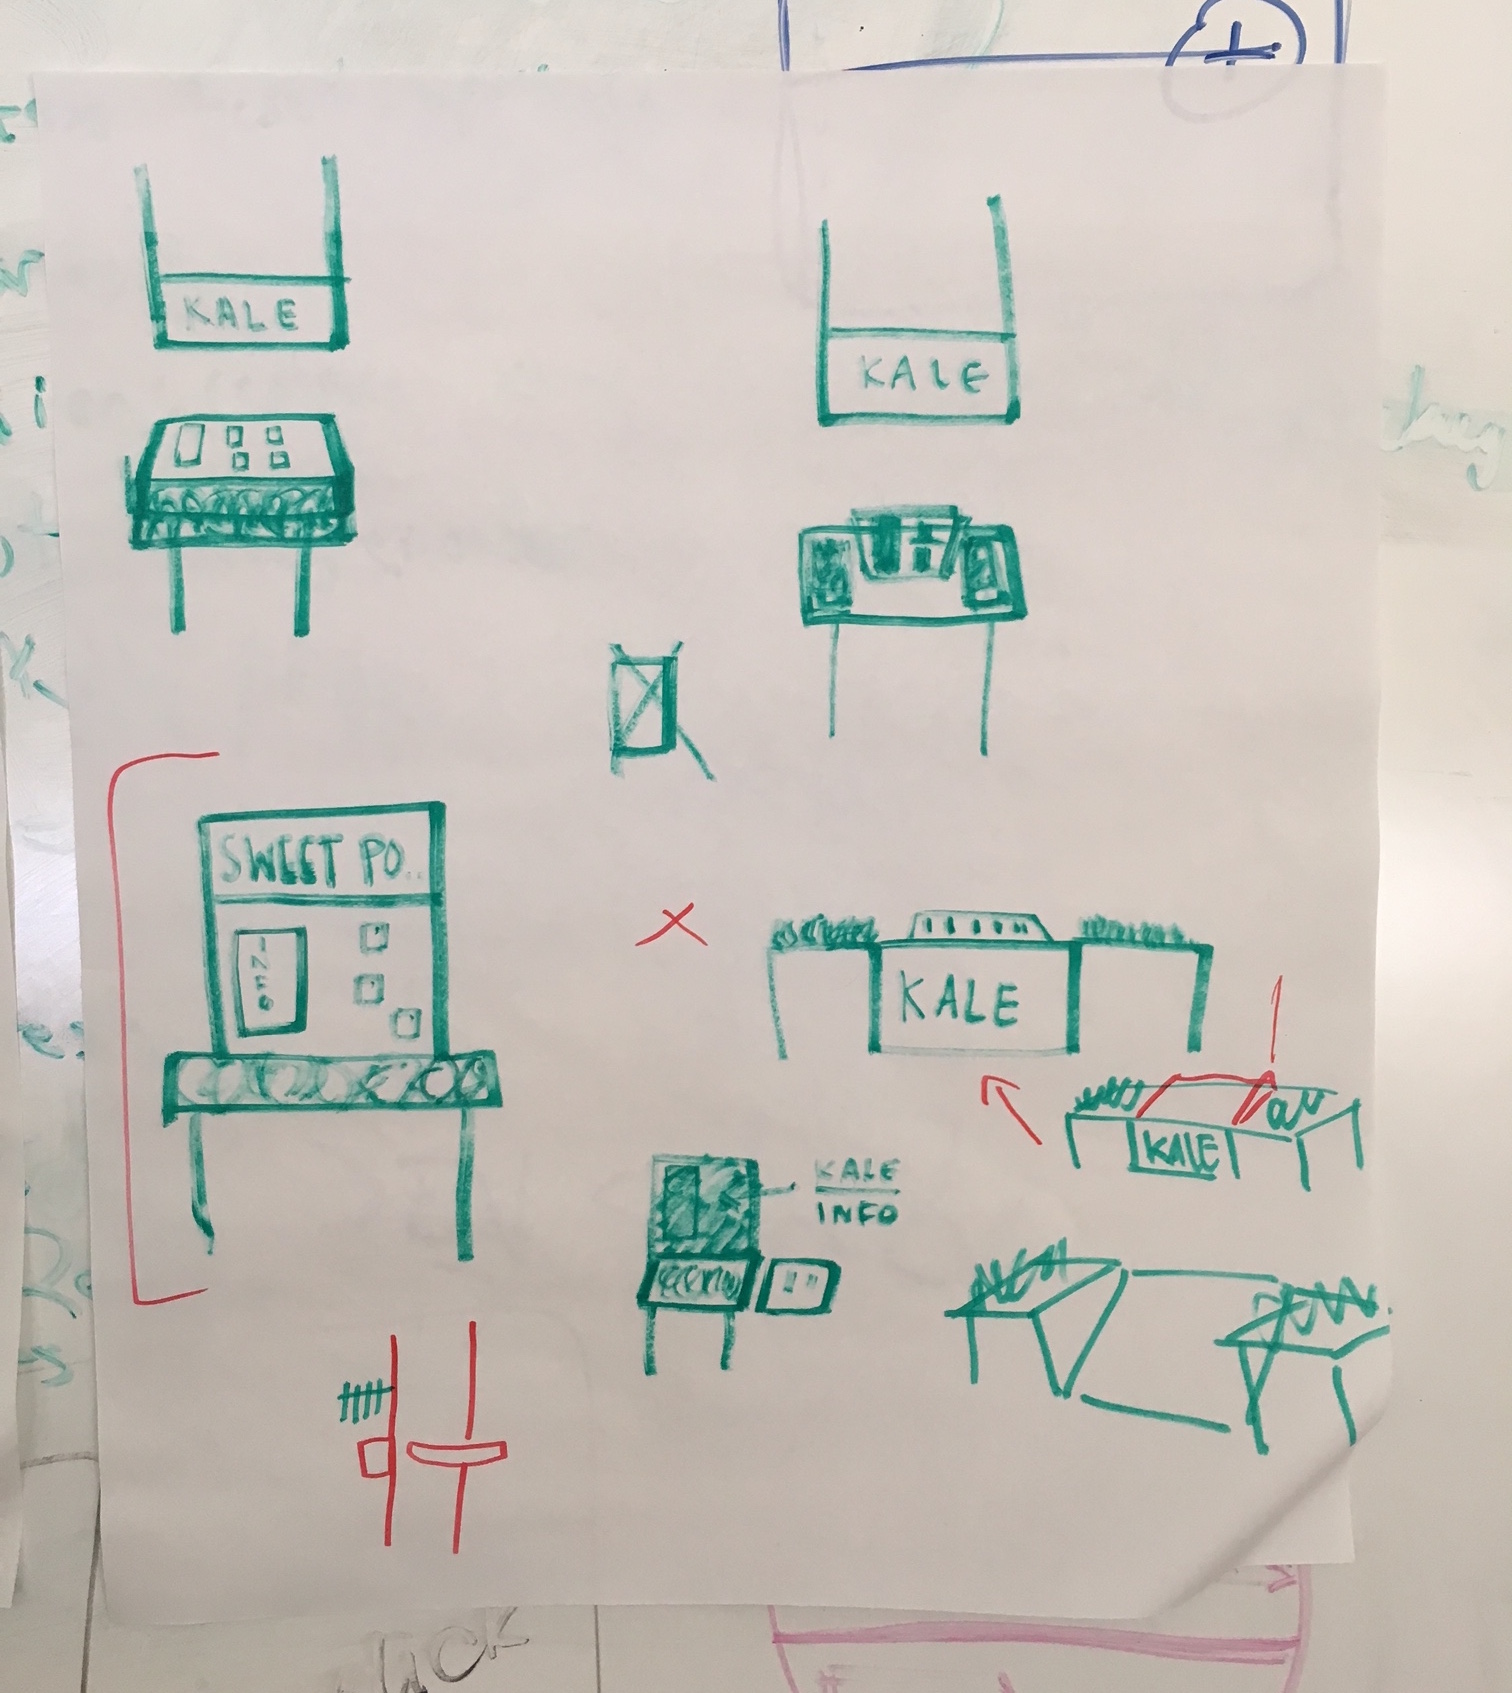 KALE
KALE
SWEET PO..
INFO
KALE
KALE
KALE
INFO